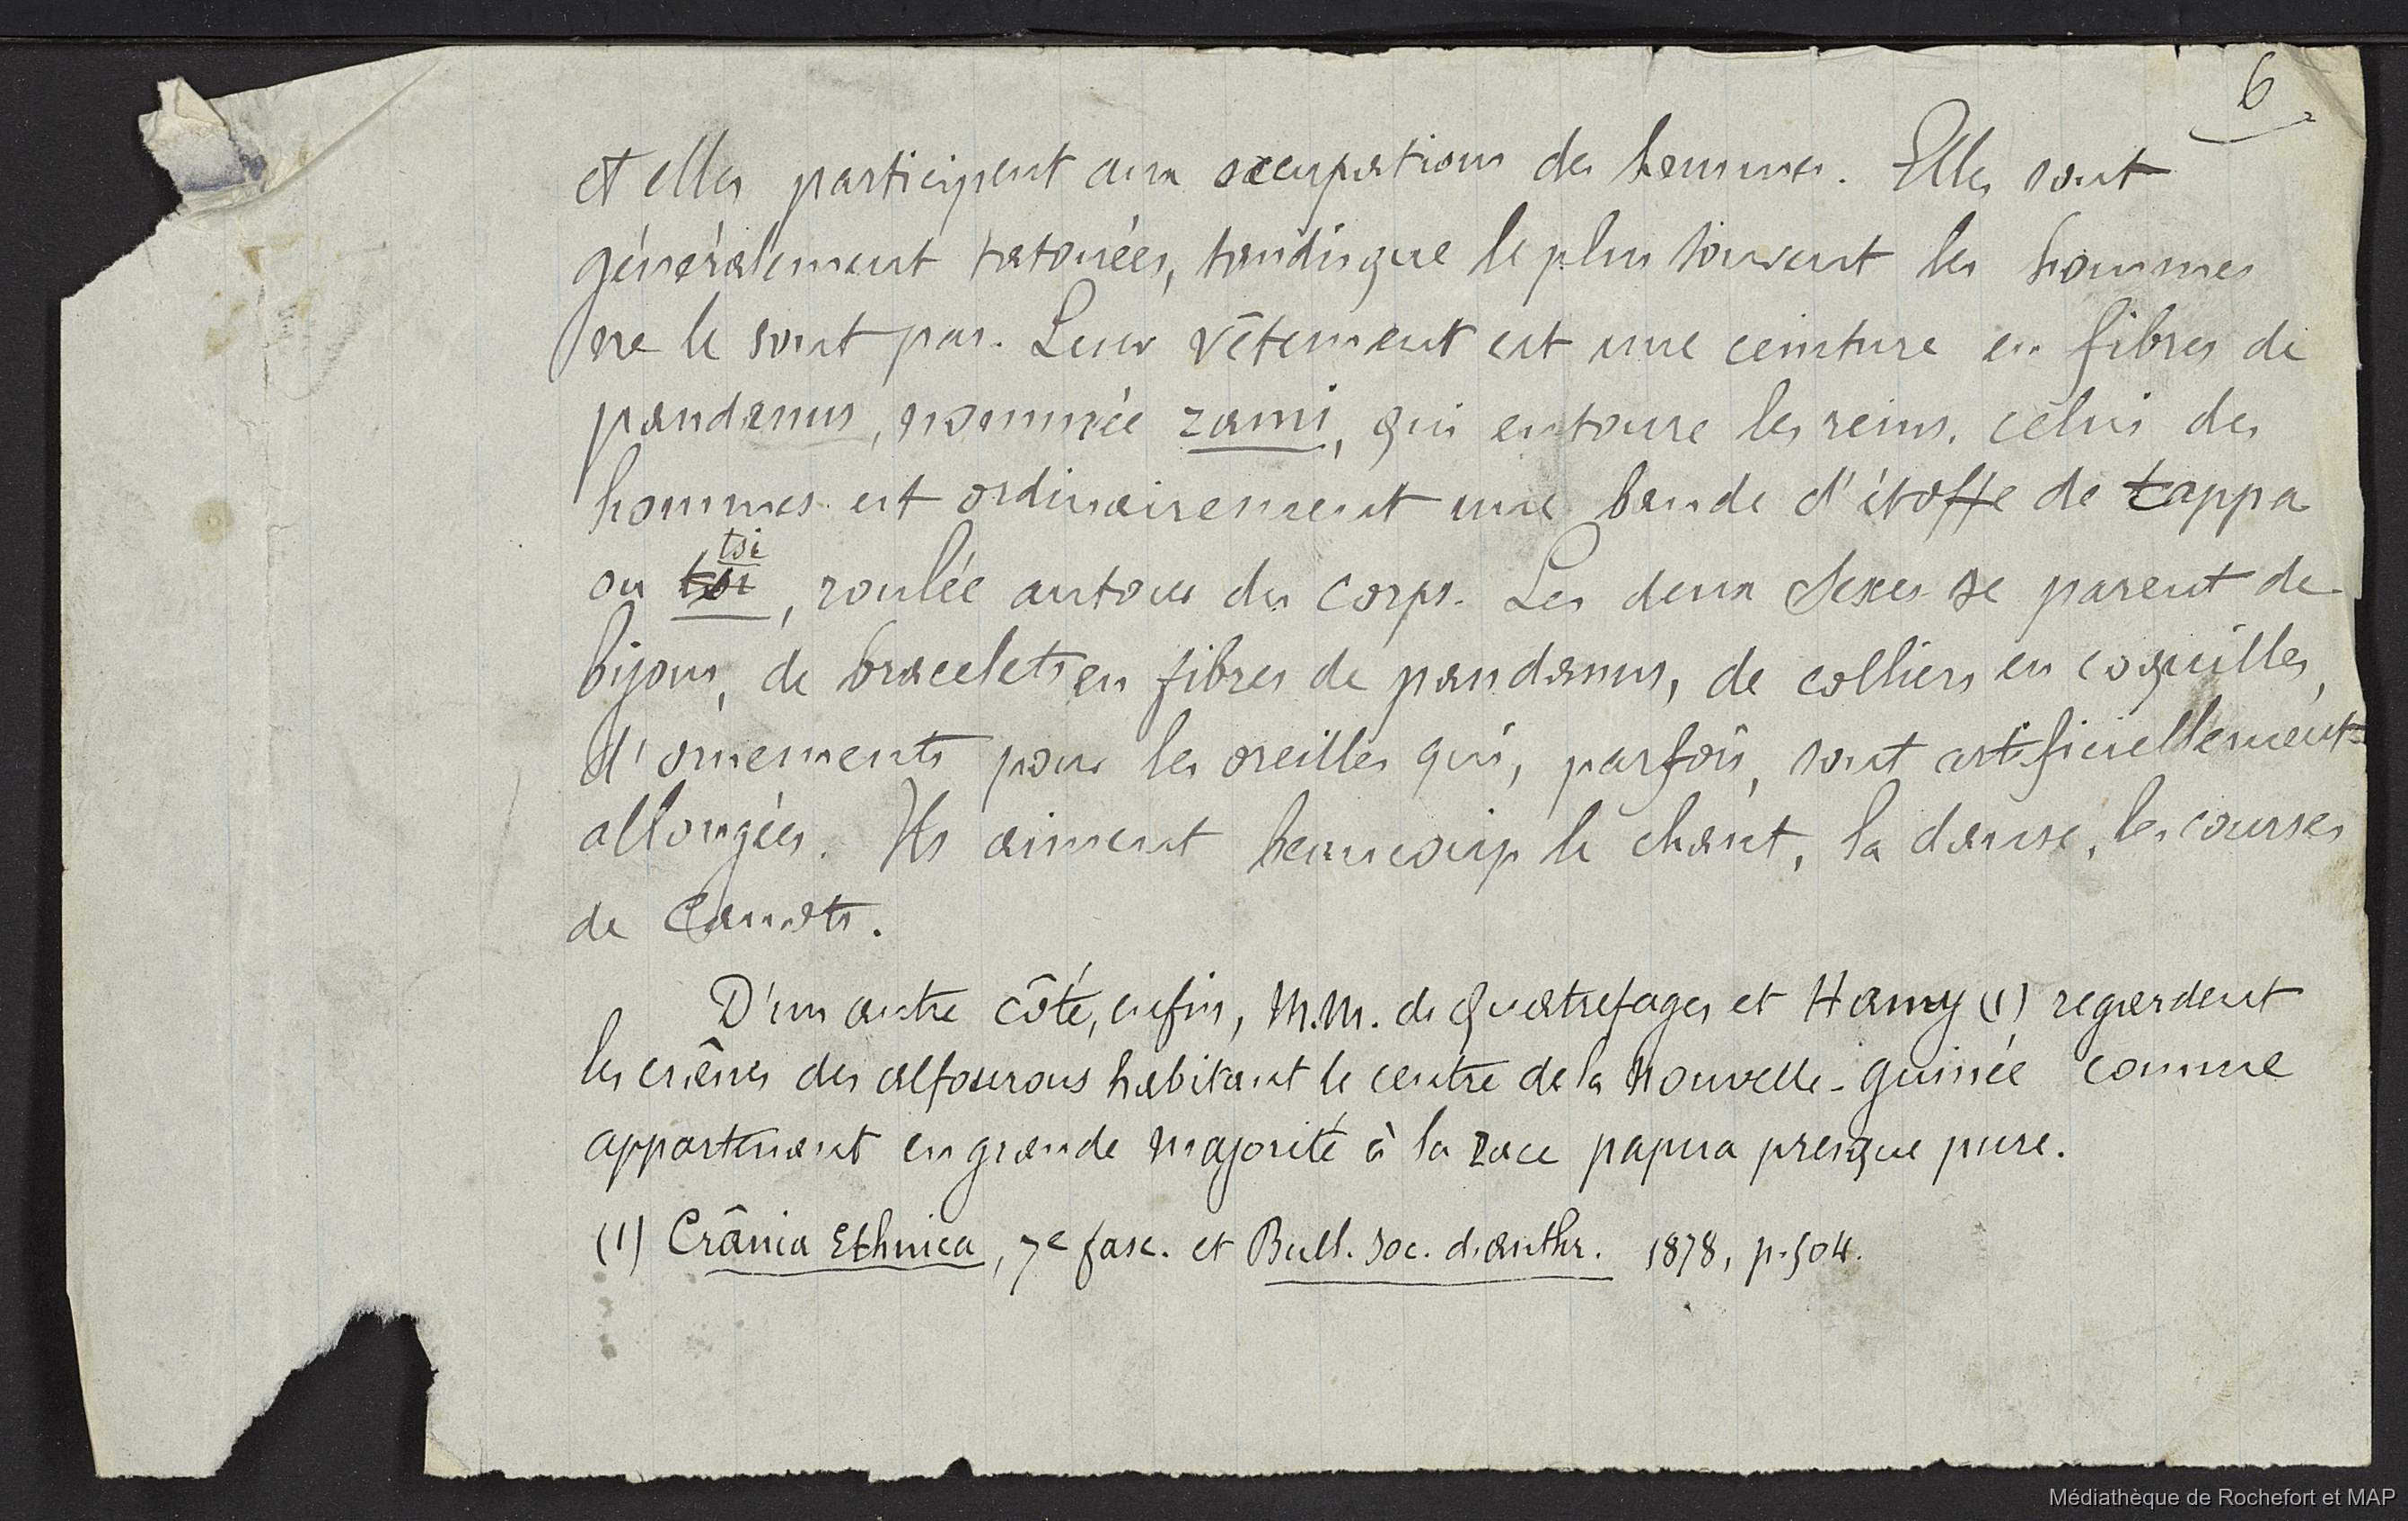 6
et elles participent aux occupations des hommes. Elles sont
généralement tatouées, tandis que le plus souvent les hommes
ne le sont pas. Leur vêtement est une ceinture en fibres de
pandanus, nommée zami, qui entoure les reins. celui des
hommes est ordinairement une bande d'étoffe de tappa
tsi
ou tsi, roulée autour du corps. Les deux sexes se parent de
bijoux, de bracelets en fibres de pandanus, de colliers en coquilles,
d'ornements pour les oreilles qui, parfois, sont artificiellement
allongées. Ils aiment beaucoup le chant, la danse, les courses
de canots.
D'un autre côté, enfin, M.M. de Quatrefages et Hamy (1) regardent
les crânes des alfourous habitant le centre de la Nouvelle-Guinée comme
appartenant en grande majorité à la race papua presque pure.
(1) Crânia Ethnica, 7e fasc. et Bull. Soc. d'anthr. 1878, p. 504.
Médiathèque de Rochefort et MAP